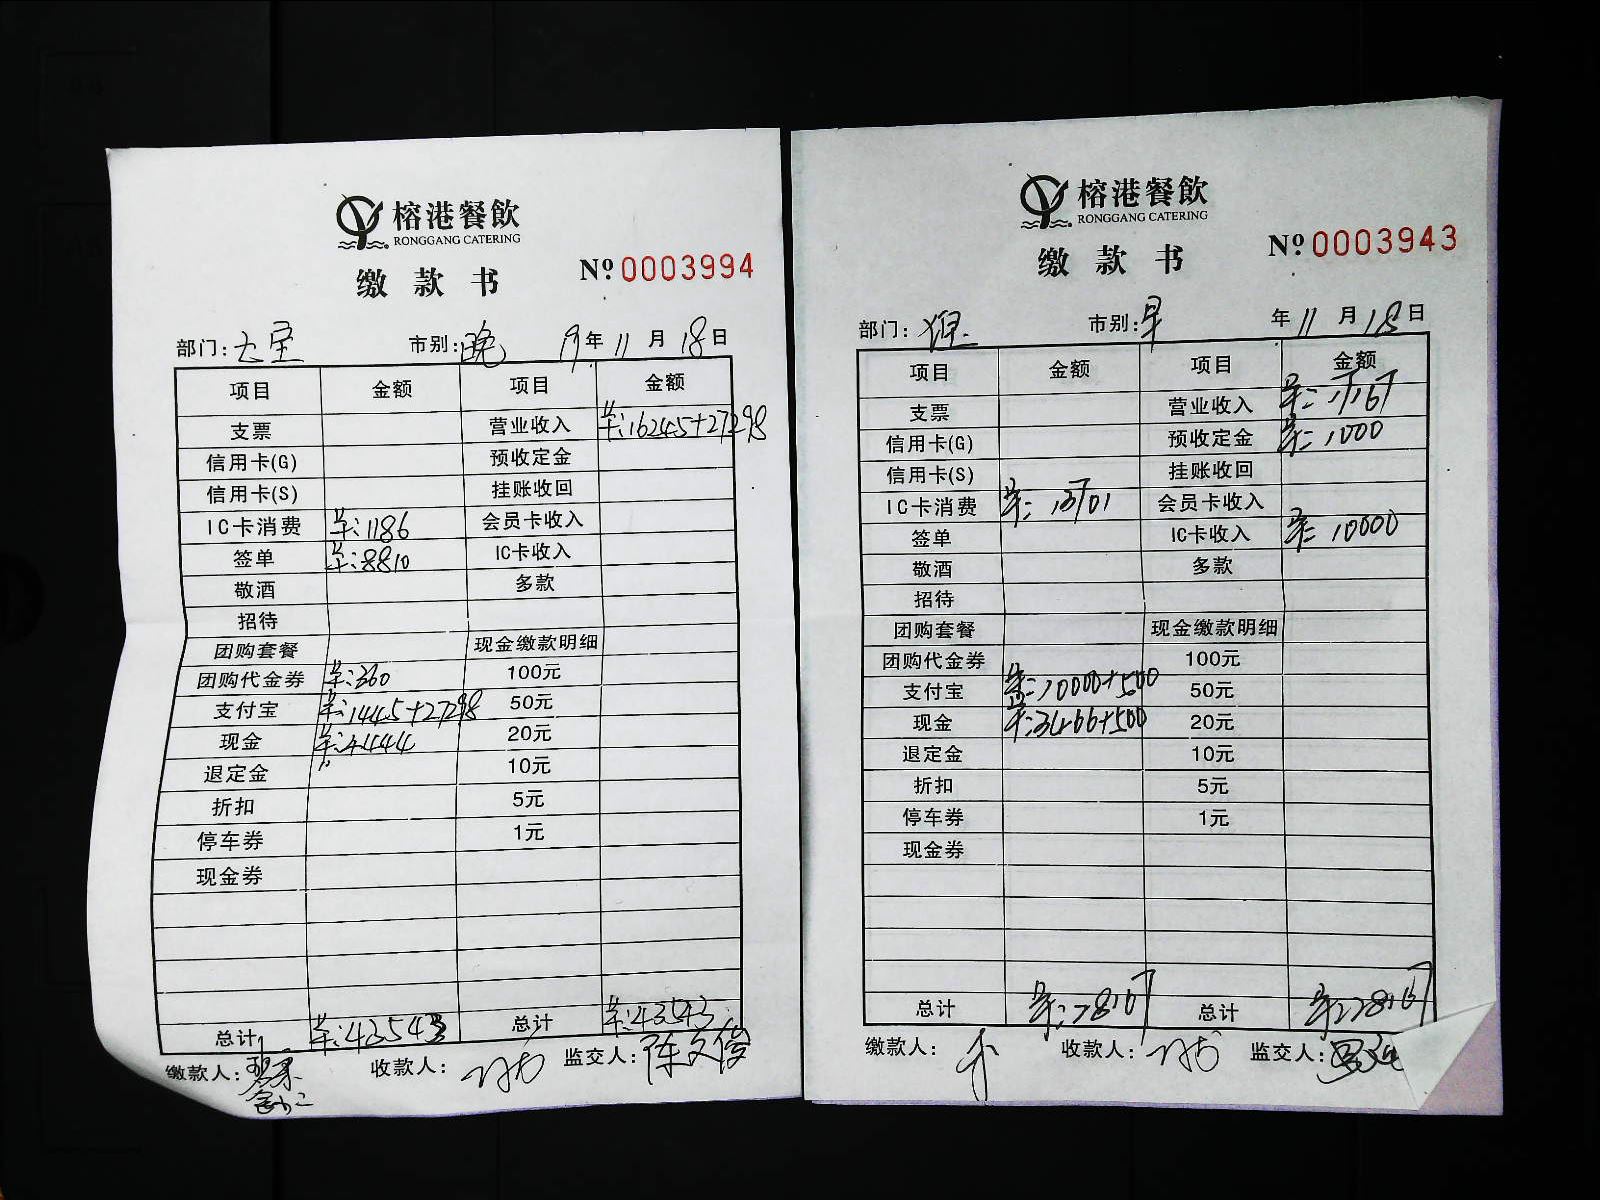 榕港餐飲
RONGGANG CATERING
缴款书 Nº 0003994
部门: 大宝 市别: 晚 19年 11 月 18 日
项目 金额 项目 金额
支票 营业收入 单:16245+27298
信用卡(G) 预收定金
信用卡(S) 挂账收回
IC卡消费 单:1186 会员卡收入
签单 单:8810 IC卡收入
敬酒 多款
招待
团购套餐 现金缴款明细
团购代金券 单:360 100元
支付宝 单:1445+27298 50元
现金 单:4444 20元
退定金 10元
折扣 5元
停车券 1元
现金券
总计 单:43543 总计 单:43543
缴款人: 收款人: 监交人: 陈文俊
榕港餐飲
RONGGANG CATERING
缴款书 Nº 0003943
部门: 市别: 早 年 11 月 18 日
项目 金额 项目 金额
支票 营业收入
信用卡(G) 预收定金 单:1000
信用卡(S) 挂账收回
IC卡消费 会员卡收入
签单 IC卡收入 单:10000
敬酒 多款
招待
团购套餐 现金缴款明细
团购代金券 100元
支付宝 单:10000+500 50元
现金 单:3466+500 20元
退定金 10元
折扣 5元
停车券 1元
现金券
总计 单:28167 总计 单:28167
缴款人: 收款人: 监交人: